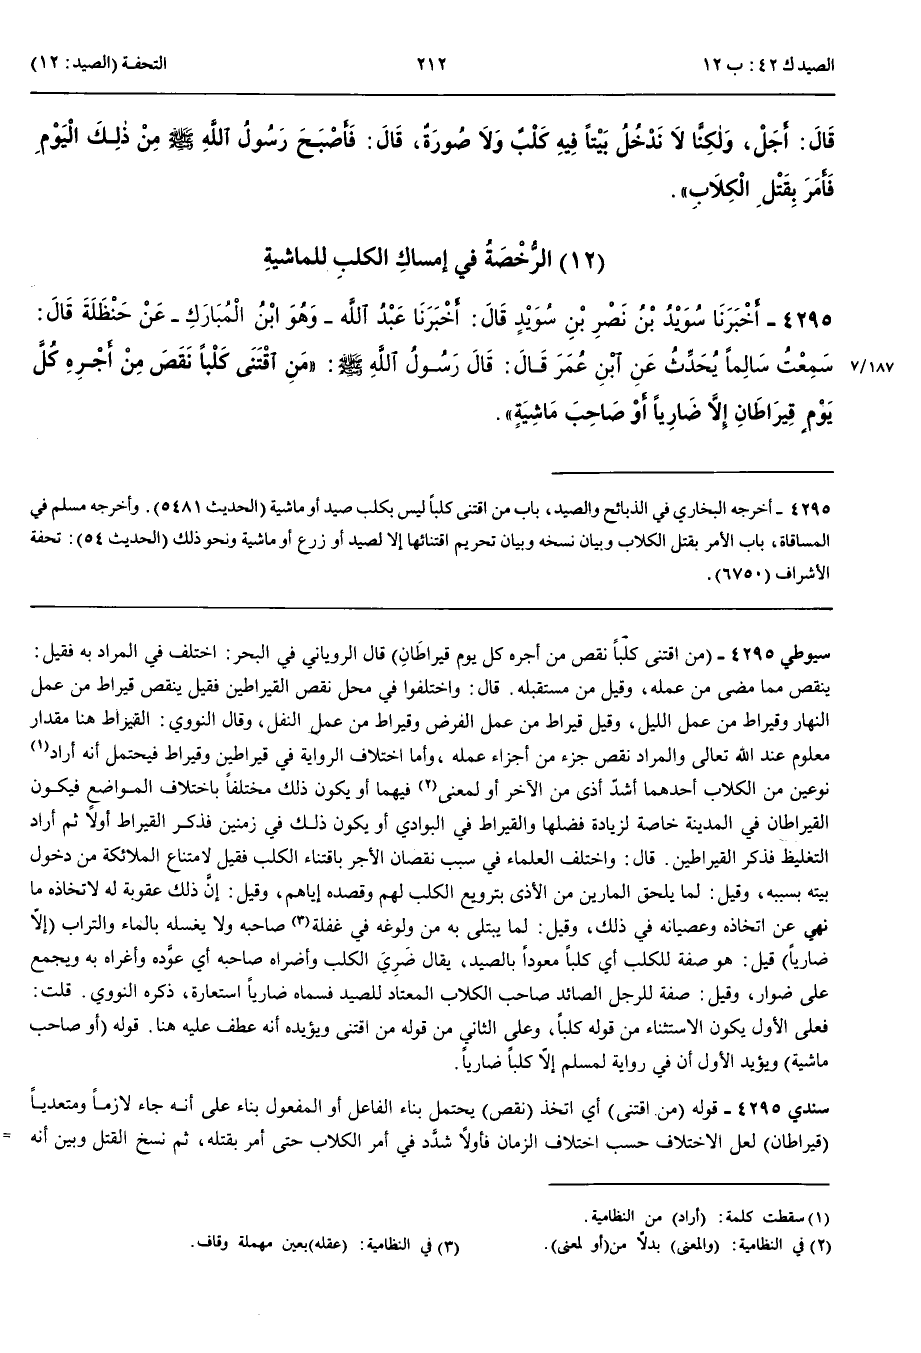 الصيد ك ٤٢: ب ١٢
٢١٢
التحفة (الصيد: ١٢)
قَالَ: أَجَلْ، وَلٰكِنَّا لَا نَدْخُلُ بَيْتاً فِيهِ كَلْبٌ وَلَا صُورَةٌ، قَالَ: فَأَصْبَحَ رَسُولُ ٱللَّهِ ﷺ مِنْ ذٰلِكَ الْيَوْمِ
فَأَمَرَ بِقَتْلِ الْكِلَابِ».
(١٢) الرُّخْصَةُ في إمساكِ الكلبِ للماشيةِ
٤٢٩٥ ـ أَخْبَرَنَا سُوَيْدُ بْنُ نَصْرِ بْنِ سُوَيْدٍ قَالَ: أَخْبَرَنَا عَبْدُ ٱللَّه ـ وَهُوَ ابْنُ الْمُبَارَكِ ـ عَنْ حَنْظَلَةَ قَالَ:
سَمِعْتُ سَالِماً يُحَدِّثُ عَنِ ٱبْنِ عُمَرَ قَـالَ: قَالَ رَسُـولُ ٱللَّهِ ﷺ: «مَنِ ٱقْتَنَى كَلْباً نَقَصَ مِنْ أَجْـرِهِ كُلَّ
٧/١٨٧
يَوْمٍ قِيرَاطَانِ إِلَّا ضَارِياً أَوْ صَاحِبَ مَاشِيَةٍ».
٤٢٩٥ ـ أخرجه البخاري في الذبائح والصيد، باب من اقتنى كلباً ليس بكلب صيد أو ماشية (الحديث ٥٤٨١). وأخرجه مسلم في
المساقاة، باب الأمر بقتل الكلاب وبيان نسخه وبيان تحريم اقتنائها إلا لصيد أو زرع أو ماشية ونحو ذلك (الحديث ٥٤): تحفة
الأشراف (٦٧٥٠).
سيوطي ٤٢٩٥ ـ (من اقتنى كلباً نقص من أجره كل يوم قيراطَانِ) قال الروياني في البحر: اختلف في المراد به فقيل:
ينقص مما مضى من عمله، وقيل من مستقبله. قال: واختلفوا في محل نقص القيراطين فقيل ينقص قيراط من عمل
النهار وقيراط من عمل الليل، وقيل قيراط من عمل الفرض وقيراط من عمل النفل، وقال النووي: القيراط هنا مقدار
معلوم عند الله تعالى والمراد نقص جزء من أجزاء عمله، وأما اختلاف الرواية في قيراطين وقيراط فيحتمل أنه أراد(١)
نوعين من الكلاب أحدهما أشدّ أذى من الآخر أو لمعنى(٢) فيهما أو يكون ذلك مختلفاً باختلاف المـواضع فيكـون
القيراطان في المدينة خاصة لزيادة فضلها والقيراط في البوادي أو يكون ذلـك في زمنين فذكـر القيراط أولاً ثم أراد
التغليظ فذكر القيراطين. قال: واختلف العلماء في سبب نقصان الأجر باقتناء الكلب فقيل لامتناع الملائكة من دخول
بيته بسببه، وقيل: لما يلحق المارين من الأذى بترويع الكلب لهم وقصده إياهم، وقيل: إنَّ ذلك عقوبة له لاتخاذه ما
نهي عن اتخاذه وعصيانه في ذلك، وقيل: لما يبتلى به من ولوغه في غفلة(٣) صاحبه ولا يغسله بالماء والتراب (إلّا
ضارياً) قيل: هو صفة للكلب أي كلباً معوداً بالصيد، يقال ضَرِيَ الكلب وأضراه صاحبه أي عوَّده وأغراه به ويجمع
على ضوار، وقيل: صفة للرجل الصائد صاحب الكلاب المعتاد للصيد فسماه ضارياً استعارة، ذكره النووي. قلت:
فعلى الأول يكون الاستثناء من قوله كلباً، وعلى الثاني من قوله من اقتنى ويؤيده أنه عطف عليه هنا. قوله (أو صاحب
ماشية) ويؤيد الأول أن في رواية لمسلم إلّا كلباً ضارياً.
سندي ٤٢٩٥ ـ قوله (من اقتنى) أي اتخذ (نقص) يحتمل بناء الفاعل أو المفعول بناء على أنـه جاء لازمـاً ومتعديـاً
(قيراطان) لعل الاختلاف حسب اختلاف الزمان فأولاً شدَّد في أمر الكلاب حتى أمر بقتله، ثم نسخ القتل وبين أنه =
(١) سقطت كلمة: (أراد) من النظامية.
(٢) في النظامية: (والمعنى) بدلاً من(أو لمعنى).
(٣) في النظامية: (عقله)بعين مهملة وقاف.